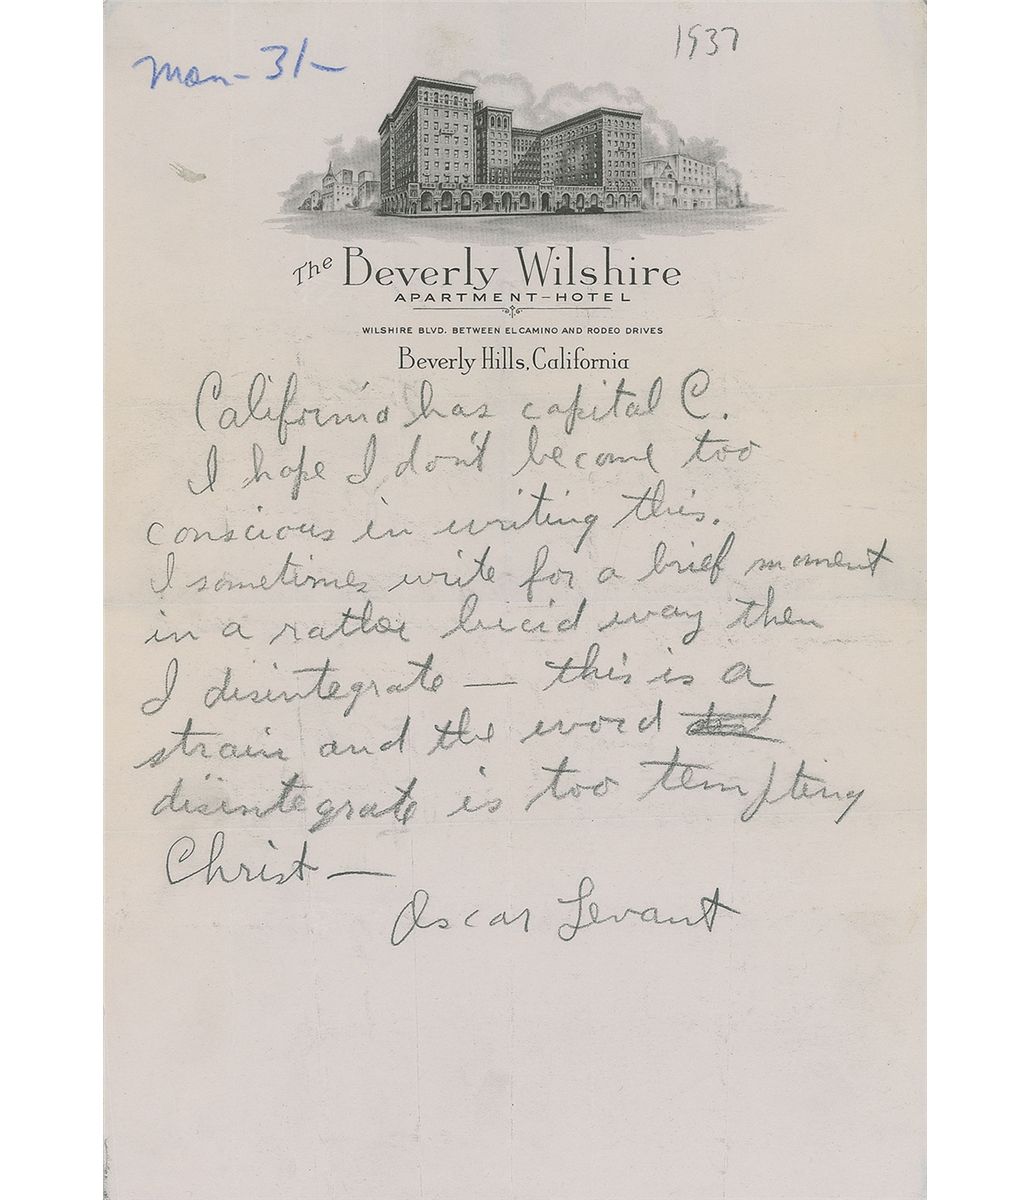 Mon- 31-
1937
The Beverly Wilshire
APARTMENT-HOTEL
WILSHIRE BLVD. BETWEEN EL CAMINO AND RODEO DRIVES
Beverly Hills, California
California has capital C.
I hope I don't become too
conscious in writing this.
I sometimes write for a brief moment
in a rather lucid way then
I disintegrate — this is a
strain and the word
disintegrate is too tempting
Christ —
Oscar Levant